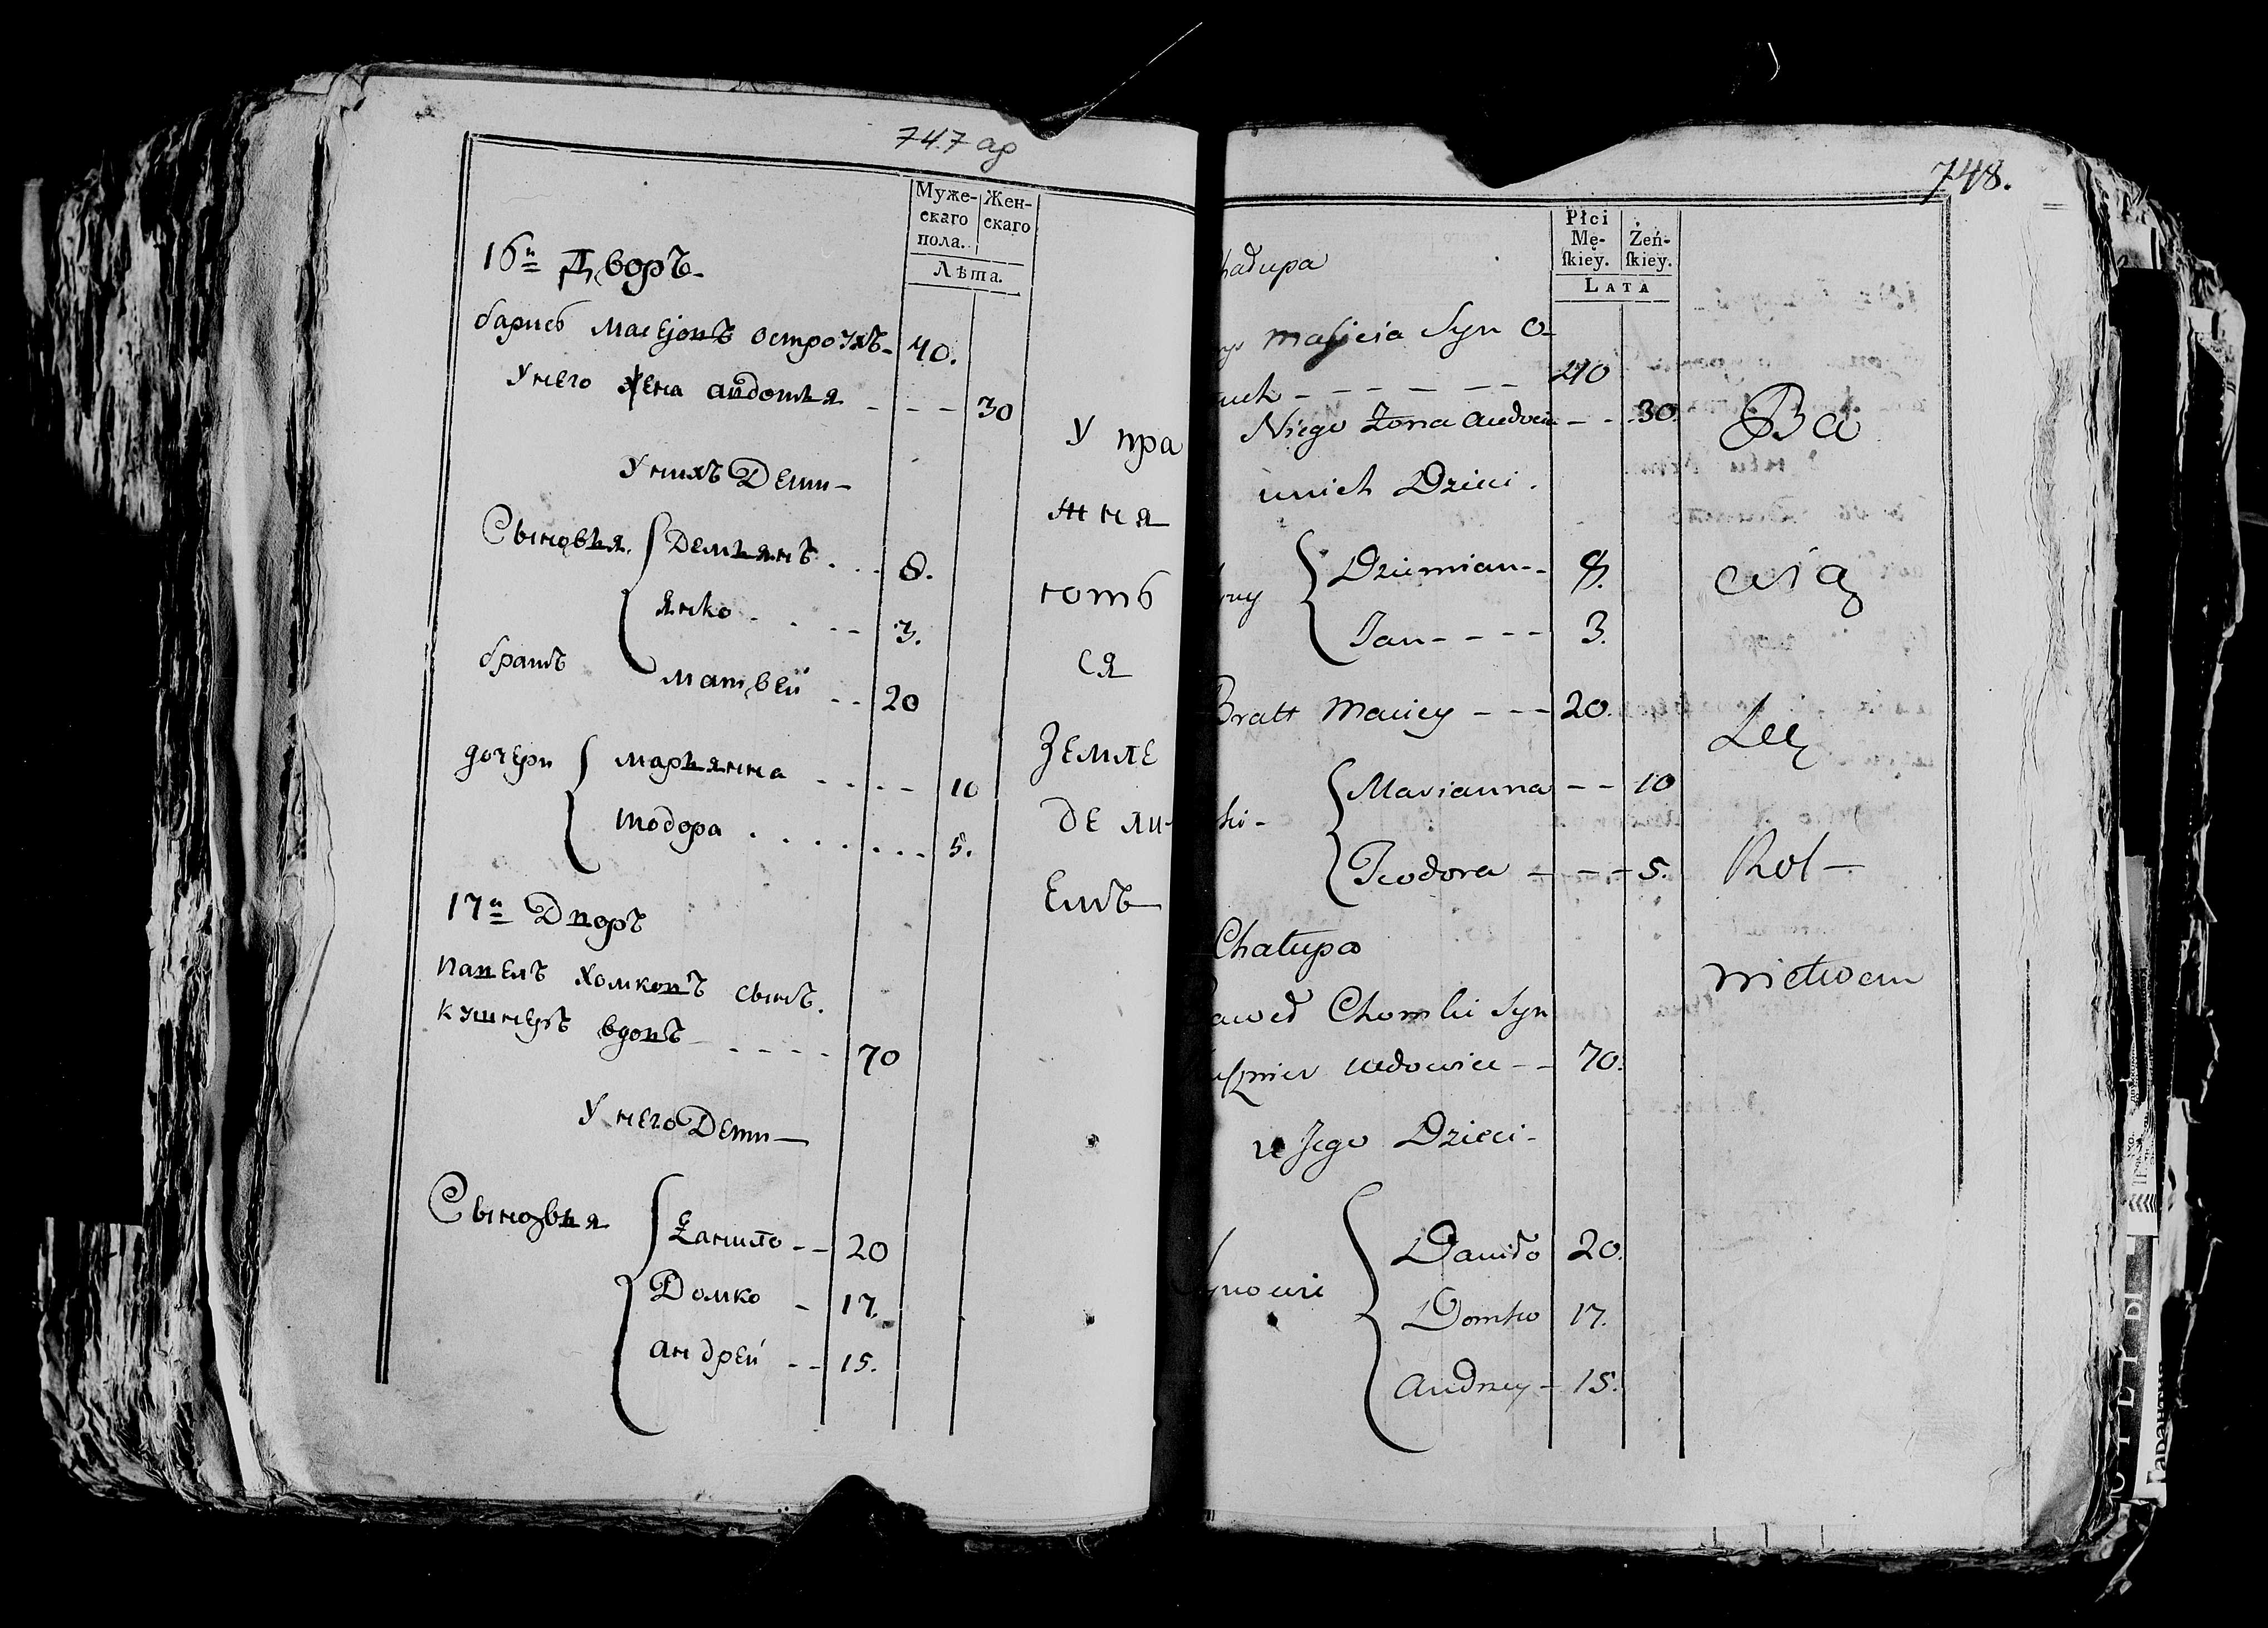 747 ар
Муже-
скаго
пола.
Жен-
скаго
Лѣта.
16й Дворъ
барис Масеіовъ острожъ 40.
У него жена авдотья 30
У нихъ Дети
Сыновья Демьянъ 8.
Янко 3.
братъ Матвей 20
дочери марьянна 10
тодора 5.
17й Дворъ
павелъ хомковъ сынъ
кушнеръ вдовъ 70
У него Дети
Сыновья Данило 20
Домко 17.
андрей 15.
У пра
жня
ютъ
ся
Земле
дели
емъ
748.
Płci
Mę-
ſkiey.
Żeń-
ſkiey.
LATA
hałupa
Maſieia Syn O-
uch 40
Niego Żona Audocia 30.
u nich Dzieci.
Dziemian 8.
Jan 3.
Bratt Maciey 20.
Marianna 10
Teodora 5.
Chałupa
aweł Chomki Syn
uſznier wdowiec 70.
u Jego Dzieci
ynowie Daniło 20.
Domko 17.
Andrzey 15.
Ba
wią
Się
Rol-
nictwem